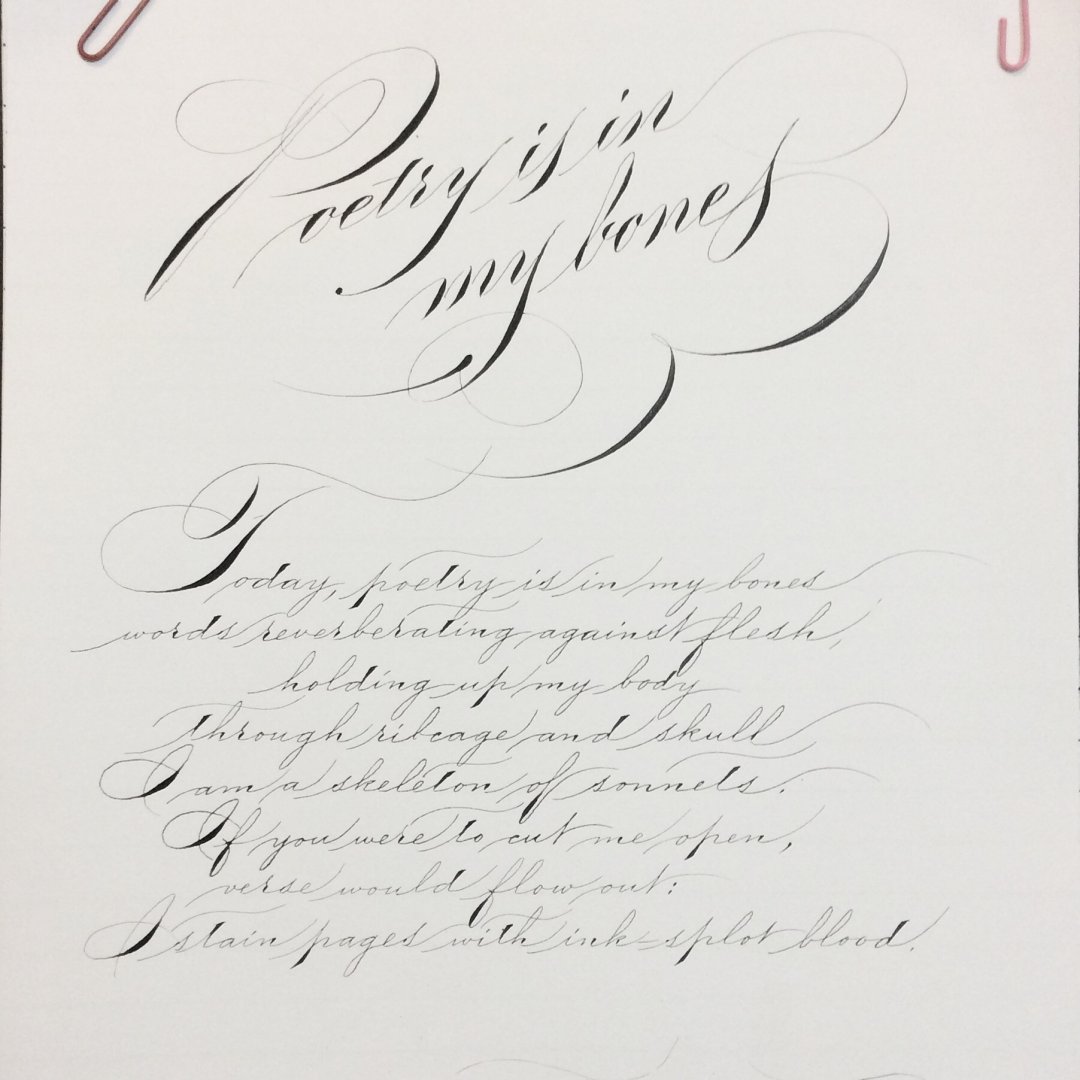 Poetry is in
my bones
Today, poetry is in my bones
words reverberating against flesh,
holding up my body
through ribcage and skull
I am a skeleton of sonnets.
If you were to cut me open,
verse would flow out:
I stain pages with ink-splot blood.